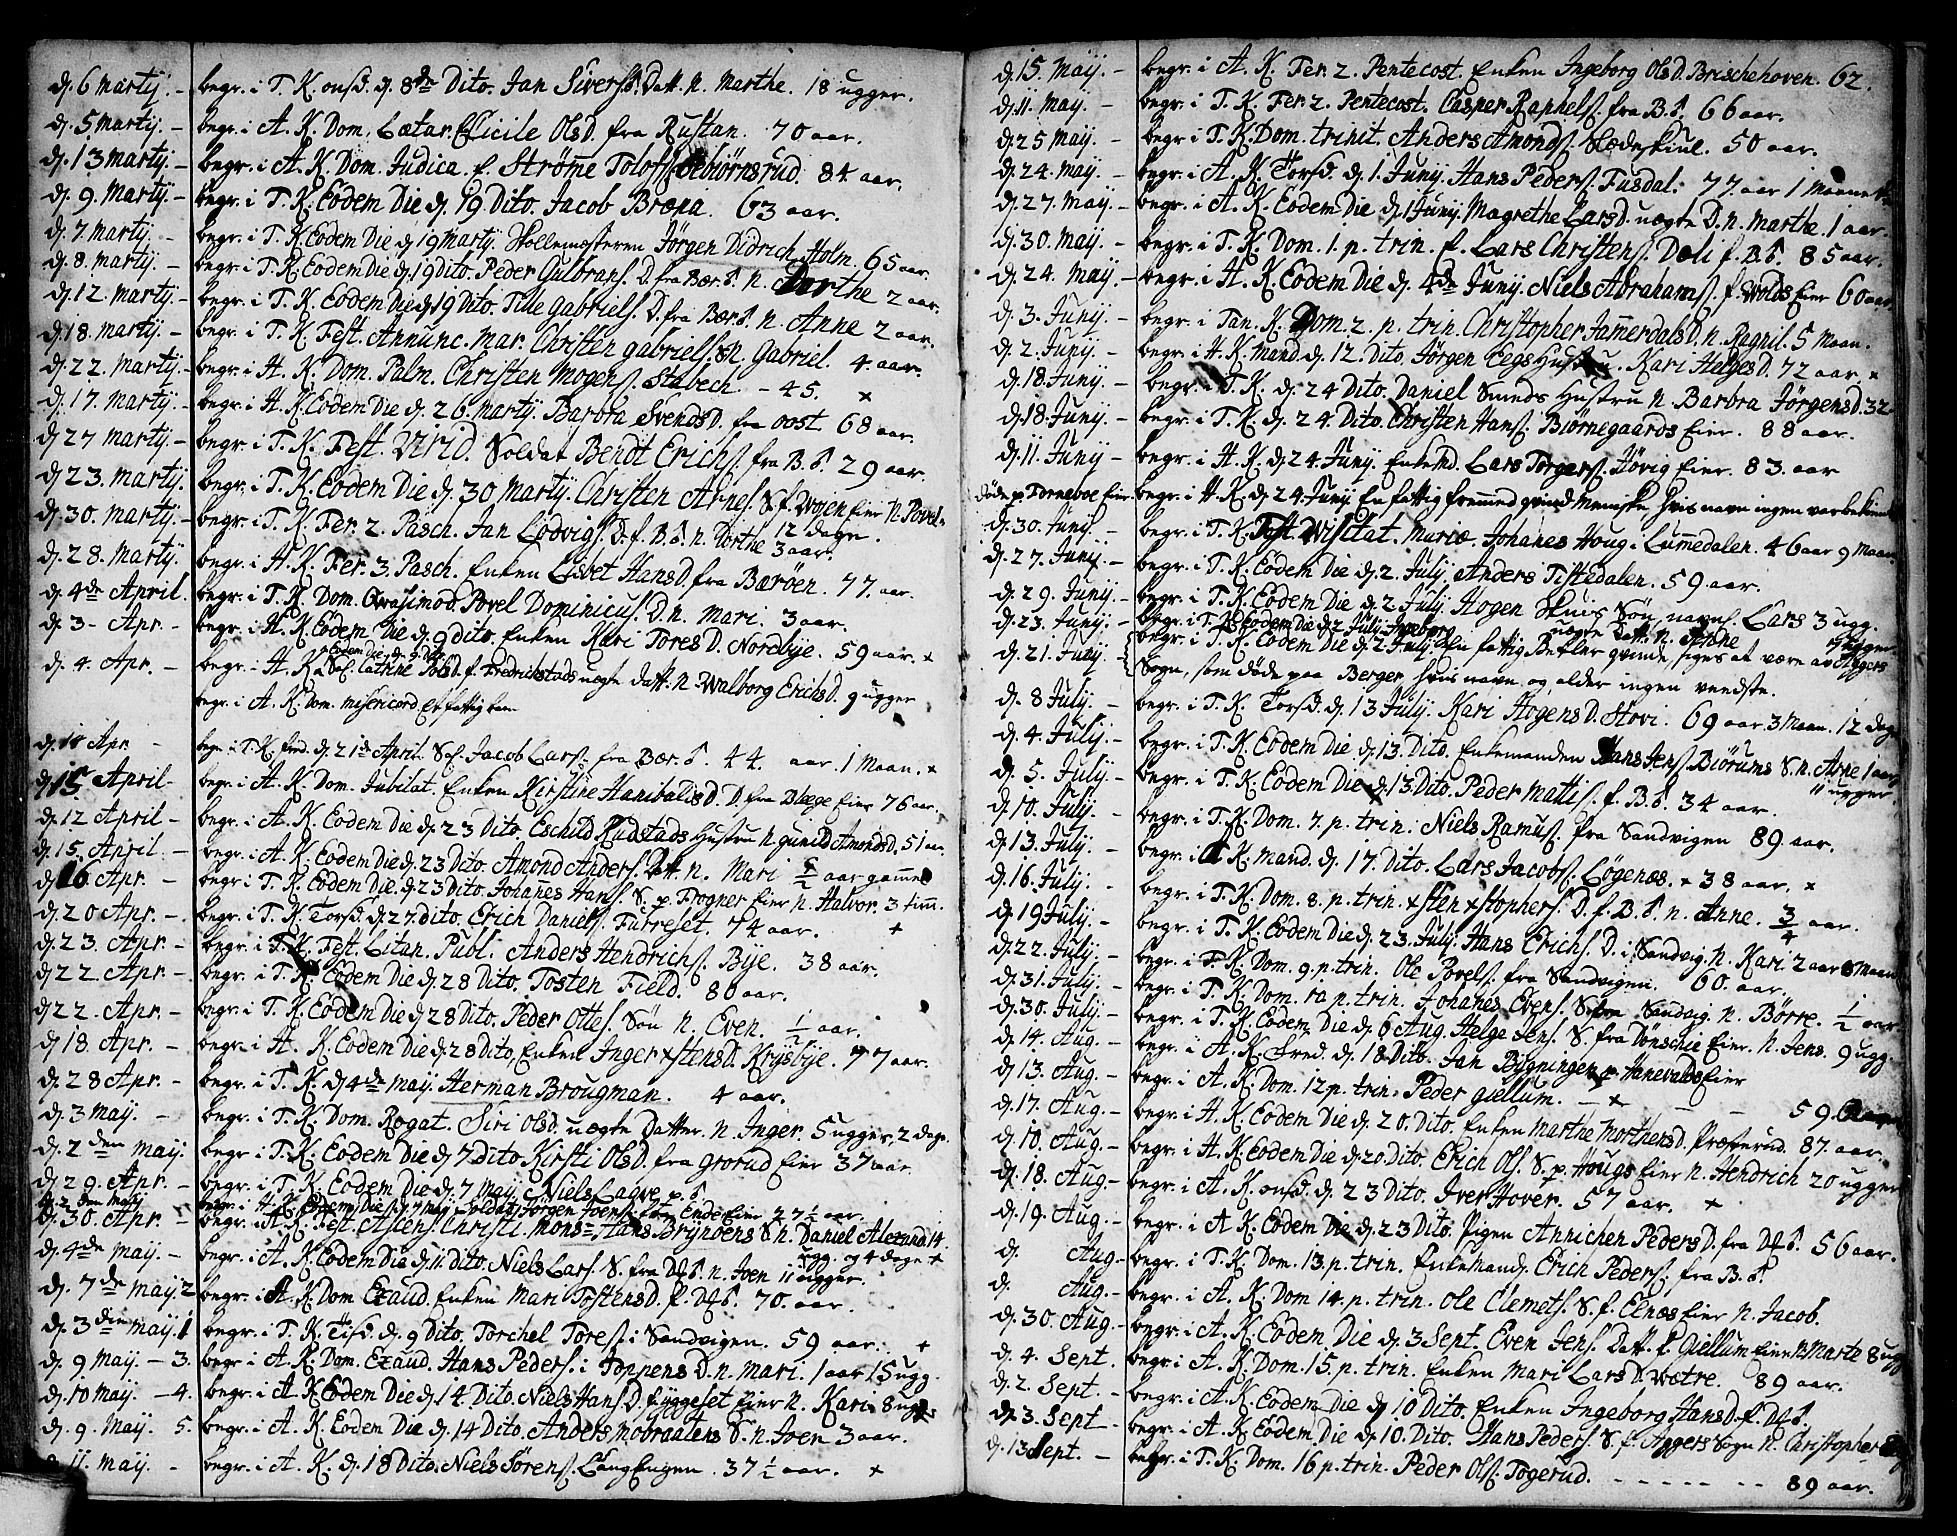 d. 6 Martij. - begr. i T. K. onsd. d. 8de Dito. Jan Sivers. Datt. n. Marthe. 18 ugger.
d. 5 Martij. - begr. i A. K. Dom. Lætar. Cicile Olsd. fra Rustan. 70 aar.
d. 13 Martij. - begr. i A. K. Dom. Judica. f. Strøme Tolofs. 84 aar.
d. 9. Martij - begr. i T. K. Eodem Die d. 19 Dito. Jacob Bræna. 63 aar.
d. 7. Martij - begr. i T. K. Eodem Die d. 19 Martij. Skollemesteren Jörgen Didrich Holm. 65 aar.
d. 8. Martij. - begr. i T. K. Eodem Die d. 19 Dito. Peder Gulbrans. D. fra Bær. S. n. Dorthe 2 aar.
d. 12. Martij - begr. i T. K. Eodem Die d. 19 Dito. Tille Gabriels. D. fra Bær. S. n. Anne 2 aar.
d. 18. Martij. - begr. i T. K. Fest. Annunc. Mar. Christen Gabriels. S. n. Gabriel. 4 aar.
d. 22. Martij. - begr. i H. K. Dom. Palm. Christen Mogens. Stabech. - 45. x
d. 17. Martij - begr. i H. K. Eodem Die d. 26. Martij. Barbra Svends D. fra oost 68 aar.
d. 27 Martij. - begr. i T. K. Fest. Virid. Soldat Bendt Erichs. fra B. S. 29 aar.
d. 23. Martij - begr. i T. K. Eodem Die d. 30 Martij. Christen Arnes. S. f. Wøjen Eier n. Povel
12 dage.
d. 30. Martij. - begr. i T. K. Fer. 2. Pasch. Jan Lodvigs. D. f. B. S. n. Dorthe 3 aar.
d. 28. Martij - begr. i H. K. Fer. 3. Pasch. Enken Lisbet Hans D. fra Bærøen. 77. aar.
d. 4de April. begr. i T. K. Dom. Qvasimod. Povel Dominicus. D. n. Mari. 3 aar.
d. 3 - Apr. - begr. i H. K. Eodem Die d. 9 Dito. Enken Kari Tores D. Nordbye. 59 aar. x
d. 4. Apr. - begr. i H. K. Eodem Die d. 9 Dito Sol. Catrine Ols D. f. Fredrichstad uegte Datt. n. Walborg Erichs D. 9 ugger
begr. i A. K. Dom. Misericord. Et fattig barn
d. 18 Apr. - begr. i T. K. fred. d. 21de April. Sol. Jacob Lars. fra Bær. S. 44. aar 1 Maan. x
d. 15. April - begr. i A. K. Dom. Jubilat. Enken Kirstine Hanibals D. fra Blæge Eier 76 aar.
d. 12 April - begr. i A. K. Eodem Die d. 23 Dito. Eschild Rudstads Hustru n. Gunild Amonds D. 51 aar
d. 15. April. - begr. i A. K. Eodem Die d. 23 Dito. Amond Anders. Datt. n. Mari ½ aar gammel
d. 16 Apr. - begr. i T. K. Eodem Die d. 23 Dito. Johanes Hans. S. p. Frogner Eier n. Halvor. 3 tim.
d. 20 Apr. - begr. i T. K. Torsd. d. 27 Dito. Erich Daniels. Furreset. 74 aar. +
d. 23. Apr. - begr. i T. K. Fest. Litan. Publ. Anders Hendrichs. Bye. 38 aar.
d. 22. Apr. - begr. i T. K. Eodem Die d. 28 Dito. Tosten Field. 80 aar.
d. 22. Apr. - begr. i T. K. Eodem Die d. 28 Dito. Peder Ottes. Søn n. Even. ½ aar.
d. 18. Apr. - begr. i H. K. Eodem Die d. 28 Dito. Enken Inger xstens D. Krysbye. 77 aar.
d. 28 Apr. - begr. i T. K. d. 4de May. Herman Brougman. 4 aar.
d. 3 May. - begr. i T. K. Dom. Rogat. Siri Olsd. uegte Datter n. Inger. 5 ugger, 2 dage.
d. 2den May. begr. i T. K. Eodem Die d. 7 Dito Kirsti Olsd. fra Grorud Eier 37 aar
d. 29. Apr. - begr. i T. K. Eodem Die d. 7 May. Niels Lagve p. S.
d. 2den May begr. i H. K. Eodem Die d. 7 May. Soldat Jørgen Joens. fra Ende Eier 27½ aar.
d. 30. Apr. - begr. i A. K. Fest. Ascens. Christi Mons= Hans Brynoens S. n. Daniel Alexand. 14
ugg. og 4 dage +
d. 4de May. - begr. i A. K. Eodem Die d. 11. Dito. Niels Lars. S. fra D4S. n. Iven 11 ugger.
d. 7de May. 2 begr. i A. K. Dom Exaud. Enken Mari Tostens D. f. D4S. 70. aar.
d. 3den May. 1 begr. i T. K. Tisd. d. 9 Dito. Torchel Tores. i Sandvigen. 59 aar. +
d. 9 May. - 3. begr. i A. K. Dom. Exaud. Hans Peders. i Toppens D. n. Mari. 1 aar 15 ugg.
d. 10 May. - 4. begr. i A. K. Eodem Die d. 14 Dito. Niels Hans. D. Eier n. Kari. 8 ugg.
d. 9. May. 5. begr. i A. K. Eodem Die d. 14 Dito. Anders Mobraatens S. n. Iven 3 aar.
d. 11. May. - begr. i A. K. d. 18 Dito. Niels Sørens. LangEngen. 37½ aar. x
d. 15. May. - begr. i A. K. Fer. 2. Pentecost. Enken Ingeborg Ols D. Brischehoven. 62.
d. 11. May. - begr. i T. K. Fer. 2. Pentecost. Casper Raphels. fra B. S. 66 aar.
d. 25 May. - begr. i T. K. Dom. trinit. Anders Amonds. Slædeskiul. 50 aar.
d. 24. May. - begr. i A. K. Torsd. d. 1. Junij. Hans Peders. Tusdal. 77 aar 1 Maanet.
d. 27. May. - begr. i A. K. Eodem Die d. 1 Junij. Magrethe Lars D. uegte D. n. Marthe. 1 aar.
d. 30. May. - begr. i T. K. Dom. 1. p. trin. f. Lars Christens. Dæli f. B. S. 85 aar.
d. 24. May. - begr. i H. K. Eodem Die d. 4de Junij. Niels Abrahams. f. Wolds Eier 60 aar.
d. 3. Junij. - begr. i Tan. K. Dom. 2. p. trin. Christopher Jamerdals D. n. Ragnil. 5 Maan.
d. 2. Junij. - begr. i H. K. Mand. d. 12. Dito Jørgen Eegs Hustru. Kari Helges D. 72 aar x
d. 18. Junij - begr. i T. K. d. 24 Dito. Daniel Smeds Hustru n. Barbra Jörgens D. 32
d. 18. Junij - begr. i T. K. d. 24. Dito. Christen Hans. Biørnegaards Eier. 88 aar.
d. 11. Junij - begr. i H. K. d. 24. Junij. Enkemd. Lars Torgers. Høvig Eier. 83. aar
døde p. Forneboe Eier. begr. i H. K. d. 24. Junij En fattig fremmed qvind Menniske hvis navn ingen var bekiendt
d. 30. Junij. - begr. i T. K. Fest. Visitat. Mariæ. Johanes Houg i Lummedalen. 46 aar 9 Maan.
d. 27. Junij - begr. i T. K. Eodem Die d. 2. July. Anders Tistedalen. 59 aar.
d. 29. Junij. - begr. i T. K. Eodem Die d. 2 July. Hogen Skuis Søn, navnl. Lars 3 ugg.
d. 23. Junij - begr. i T. K. Eodem Die d. 2 July. Ingeborg uegte Datt. n. Anne ugger
d. 21. Junij - begr. i T. K. Eodem Die d. 2 July. En fattig Betler qvinde, siges at være av Aggers
Sogn, som døde paa Berger hvis navn og alder ingen vendste.
d. 8 July. - begr. i T. K. Torsd. d. 13 July. Kari Hogens D. Stovi. 69 aar 3 Maan. 12 dage
d. 4. July. - begr. i T. K. Eodem Die d. 13. Dito. Enkemanden Hans Jens. Biørums S. n. Arne 1 aar
11 ugger.
d. 5. July. - begr. i T. K. Eodem Die d. 13. Dito. Peder Mattis. f. B. S. 34 aar.
d. 10. July. - begr. i T. K. Dom. 7. p. trin. Niels Ramus. fra Sandvigen 89 aar.
d. 13. July. - begr. i A K. Mand. d. 17. Dito. Lars Jacobs. Løgenæs. x 38 aar. x
d. 16. July. - begr. i T. K. Dom. 8. p. trin. xsten xstophers. D. f. B. S. n. Anne. ¾ aar.
d. 19 July. - begr. i T. K. Eodem Die d. 23. July. Hans Erichs. D. i Sandvig. n. Kari 2 aar 8 Maan.
d. 22. July. - begr. i T. K. Dom. 9. p. trin. Ole Povels. fra Sandvigen. 60. aar.
d. 31. July. - begr. i T. K. Dom. 10. p. trin. Johanes Evens. Søn Sandvig. n. Børre. ½ aar
d. 30. July. - begr. i T. K. Eodem Die d. 6 Aug. Helge Jens. S. fra Dønschie Eier. n. Jens. 9 ugg.
d. 14. Aug. - begr. i A. K. Fred. d. 18 Dito. Jan Bygningen p. Hanevolds Eier
d. 13. Aug. - begr. i A. K. Dom. 12 p. trin. Peder Giellum. - x - - 59.
d. 17. Aug. - begr. i H. K. Eodem Die d. 20. Dito. Enken Marthe Morthens D. Præsterud. 87. aar.
d. 10. Aug. - begr. i H. K. Eodem Die d. 20. Dito. Erich Ols. S. p. Hougs Eier n. Hendrich 20 ugger
d. 18. Aug. - begr. i A. K. onsd. d. 23 Dito. Iver Hover. 57 aar. x
d. 19. Aug. - begr. i A K. Eodem Die d. 23 Dito. Pigen Annichen Peders D. fra D4S. 56 aar.
d. Aug. - begr. i T. K. Dom. 13. p. trin. Enkemand. Erich Peders. fra B. S.
d. Aug. - begr. i A. K. Dom 14. p. trin. Ole Clemets. S. f. Enæs Eier n. Jacob.
d. 30. Aug. - begr. i A. K. Eodem Die d. 3 Sept. Even Jens. Datt. f. Giellum Eier n. Marte 8 ugg
d. 4. Sept. begr. i A. K. Dom. 15. p. trin. Enken Mari Lars D. Wøtre. 89 aar.
d. 2. Sept. - begr. i A. K. Eodem Die d. 10 Dito. Enken Ingeborg Hans D. f. D4S.
d. 3. Sept - begr. i A. K. Eodem Die d. 10. Dito. Hans Peders. S. f. Aggers Sogn n. Christopher
d. 13 Sept. - begr. i T. K. Dom. 16. p. trin. Peder Ols. Togerud. - - - - - - 89 aar.